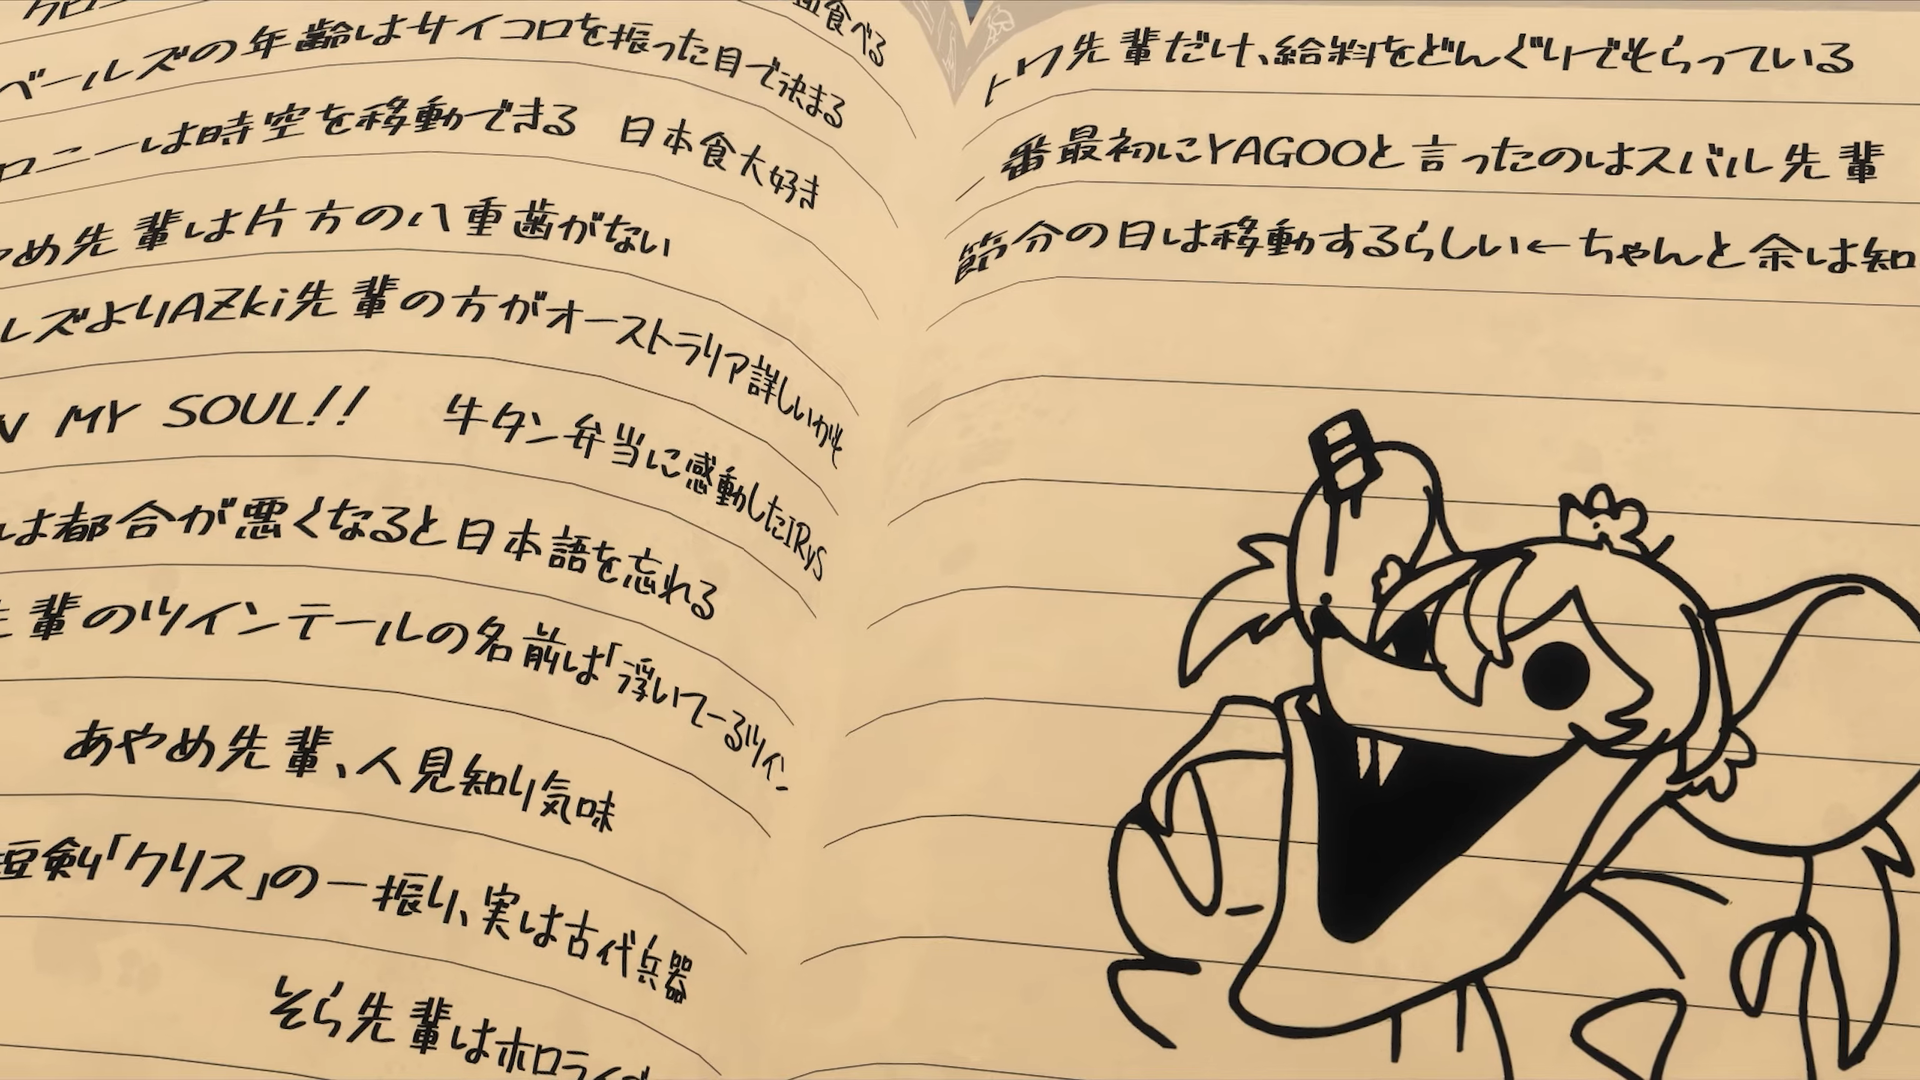 クロニ
皿食べる
ベールズの年齢はサイコロを振った目で決まる
ロニーは時空を移動できる 日本食大好き
やめ先輩は片方の八重歯がない
ルズよりAZKi先輩の方がオーストラリア詳しいかも
N MY SOUL!! 牛タン弁当に感動したIRyS
は都合が悪くなると日本語を忘れる
先輩のツインテールの名前は「浮いてーるツイン
あやめ先輩、人見知り気味
短剣「クリス」の一振り、実は古代兵器
そら先輩はホロライブ
トワ先輩だけ、給料をどんぐりでもらっている
一番最初にYAGOOと言ったのはスバル先輩
節分の日は移動するらしい←ちゃんと余は知